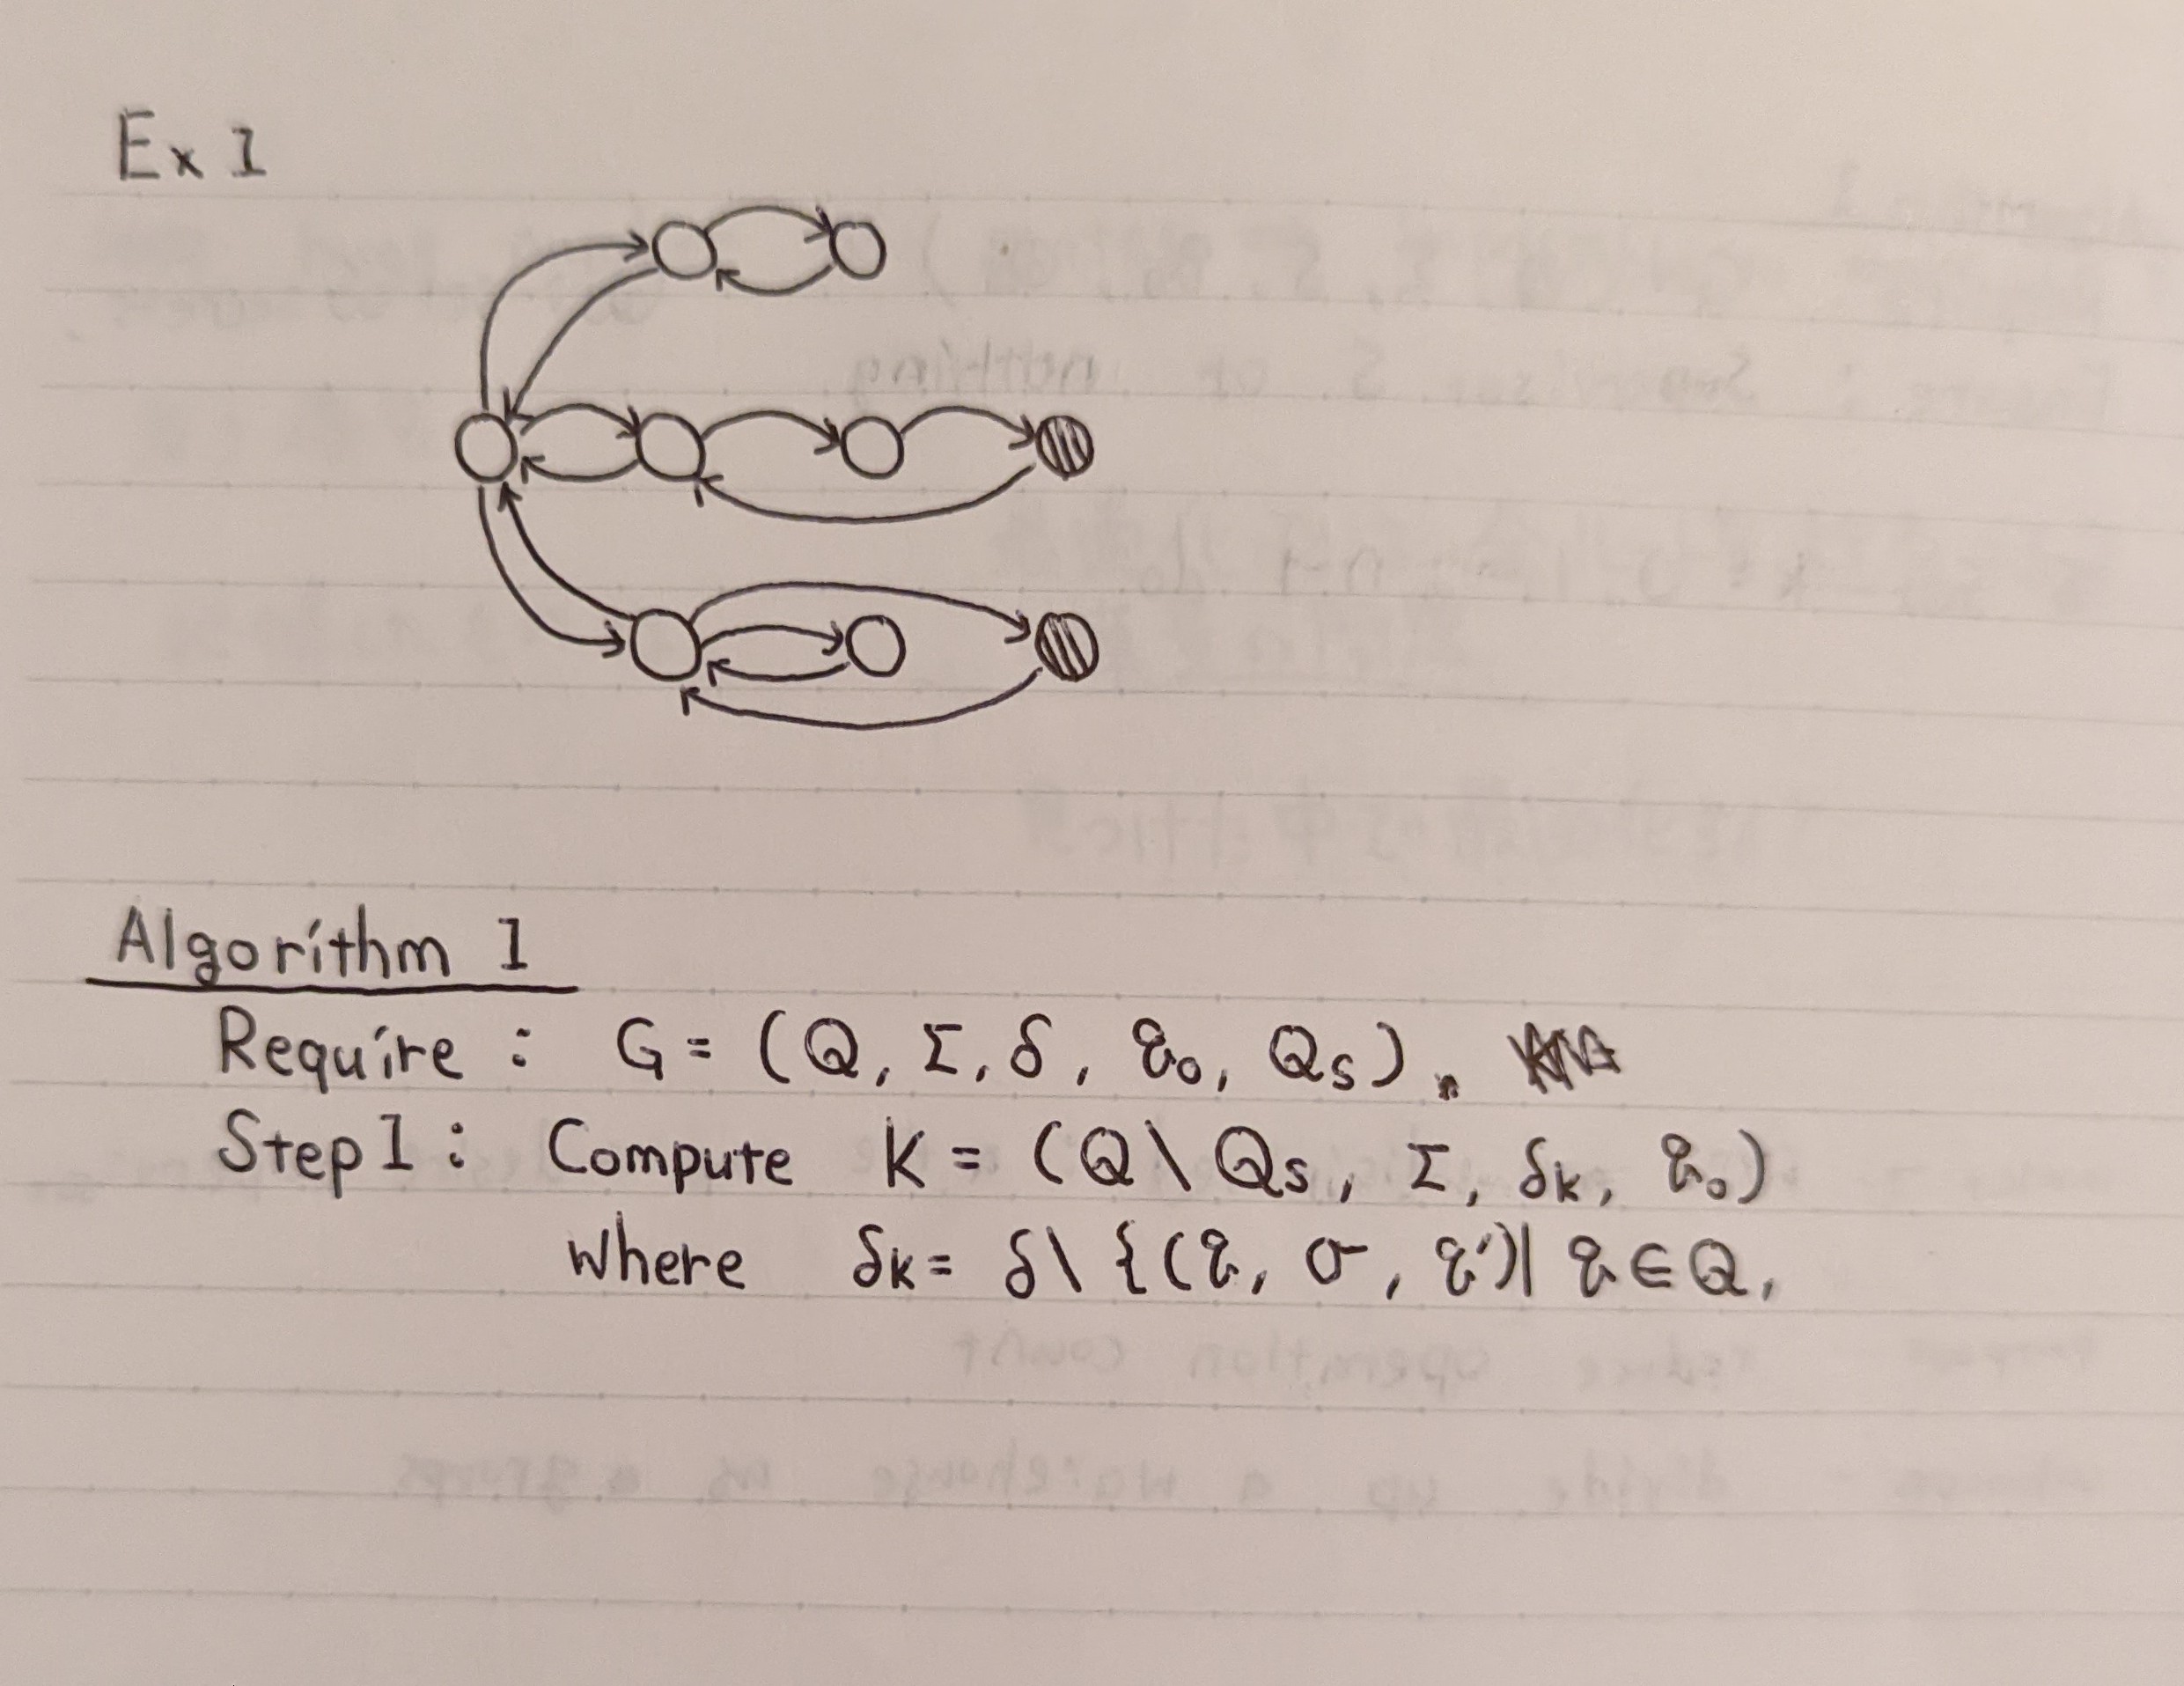 Ex 1
Algorithm 1
Require : G = (Q, Σ, δ, q₀, Qs).
Step 1 : Compute K = (Q \ Qs, Σ, δK, q₀)
where δK = δ \ {(q, σ, q')| q ∈ Q,